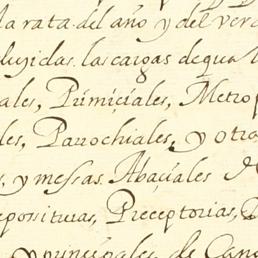 la rata del año y del ver
luyidas. las cargas de qua
ales, Primiçiales, Metrop
les, Parrochiales, y otro
s, y messas Abaçiales
eposituras, Preceptorias,
y prinçipales de Can